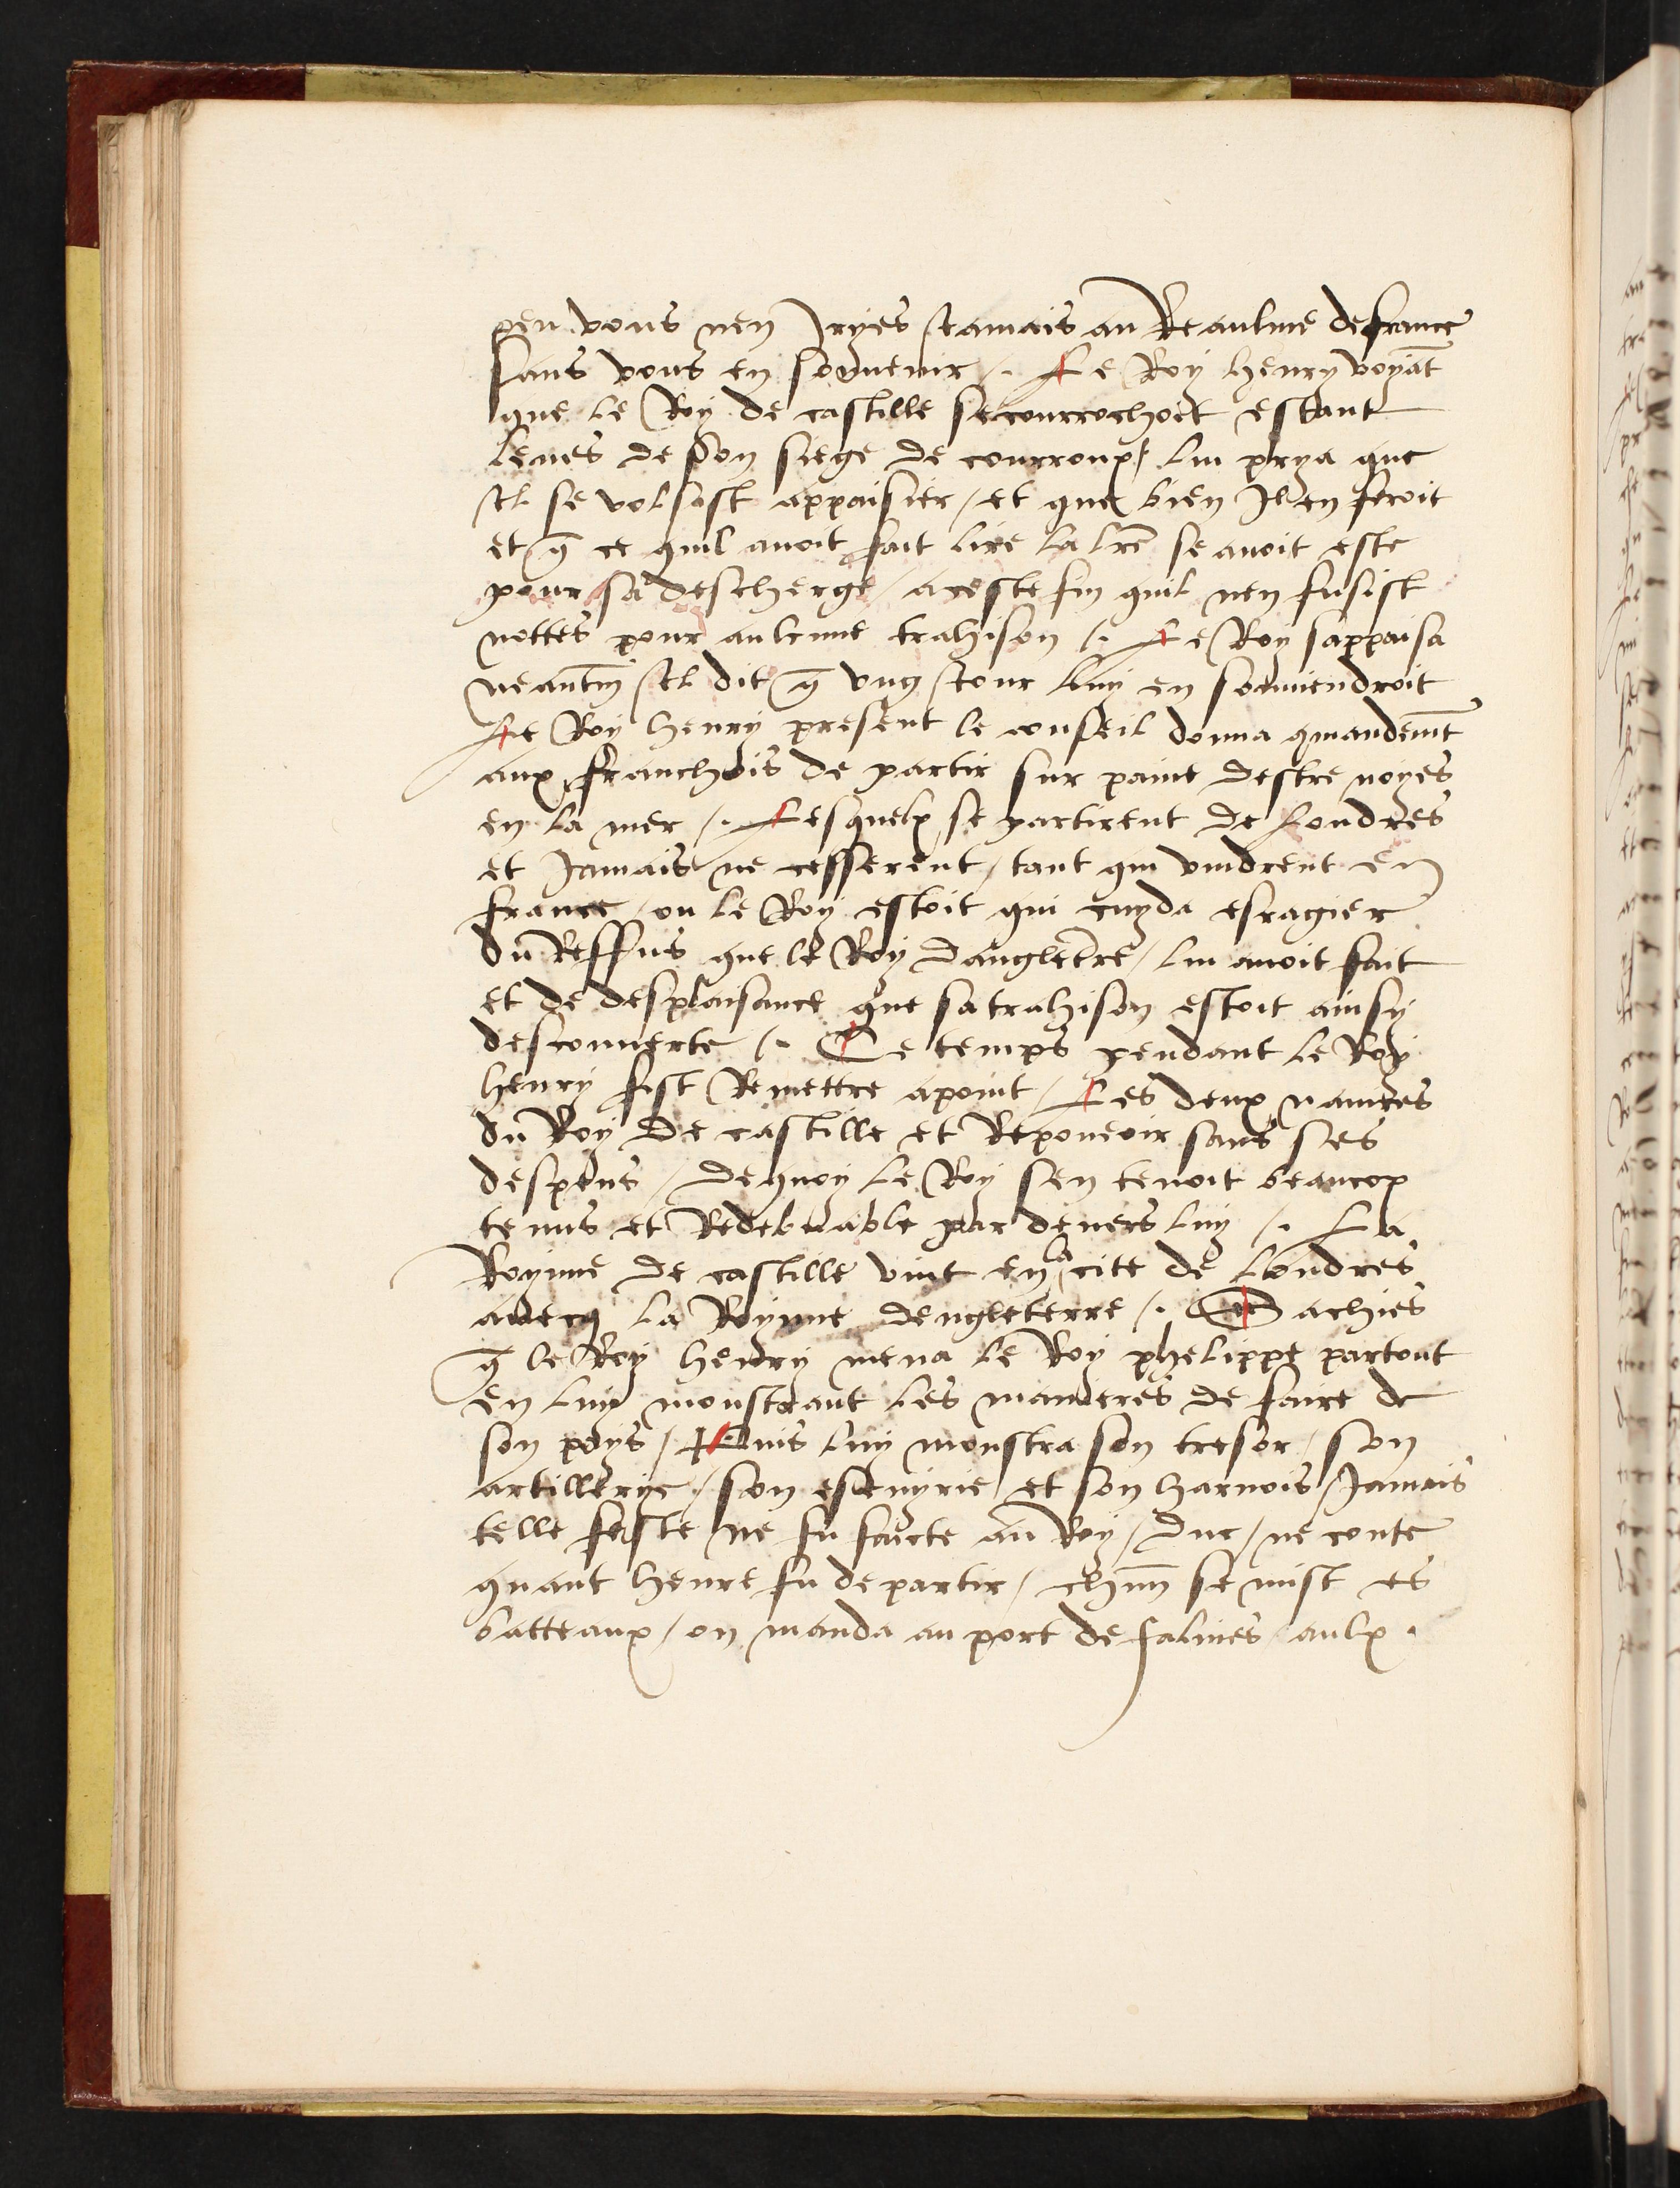 peu vous nen Iryes Jamais au Reaulme de france
sans vous en souvenir /. Le Roy henry voyãt
que le Roy de castille se courrochoit estant
leves de son siege de courroux / lui prya que
Il se volsist appaisier / et que bien Il en feroit
et q̃ ce quil avoit fait lire la lr̃e se avoit este
pour sa descherge / a ceste fin quil nen fusist
nottes pour aulcune trahison /. Le Roy sappaisa
neantm̃ Il dit q̃ ung Jour luy en souviendroit
Le Roy henry present le conseil donna 9mandemẽt
aux franchois de partir sur paine destre noyes
en la mer /. Lesquelx se partirent de Londres
et Jamais ne cesserent / tant qui vindrent en
france / ou le Roy estoit qui cuyda esragier
du Reffus que le Roy dangleterre / lui avoit fait
et de desplaisance que sa trahison estoit ainsy
descouverte /. Ce temps pendant le Roy
henry fist Remettre a point / Les deux navires
du Roy de castille et Repouvoir sans ses
despens / de quoy le Roy sen tenoit beaucop
tenus et Redebvable par devers luy /. La
Roynne de castille vint en la cite de Londres
avecq la Roynne dengleterre /. Sachies
q̃ le Roy henry mena le Roy phelippe partout
en luy monstrant les manieres de faire de
son pays / Puis luy monstra son tresor / son
artillerye / son escuyrie et son harnois / Jamais
telle feste ne fu faicte au Roy / duc / ne conte
quant heure fu de partir / chũn se mist es
batteaux / on manda au port de falmes / aulx .